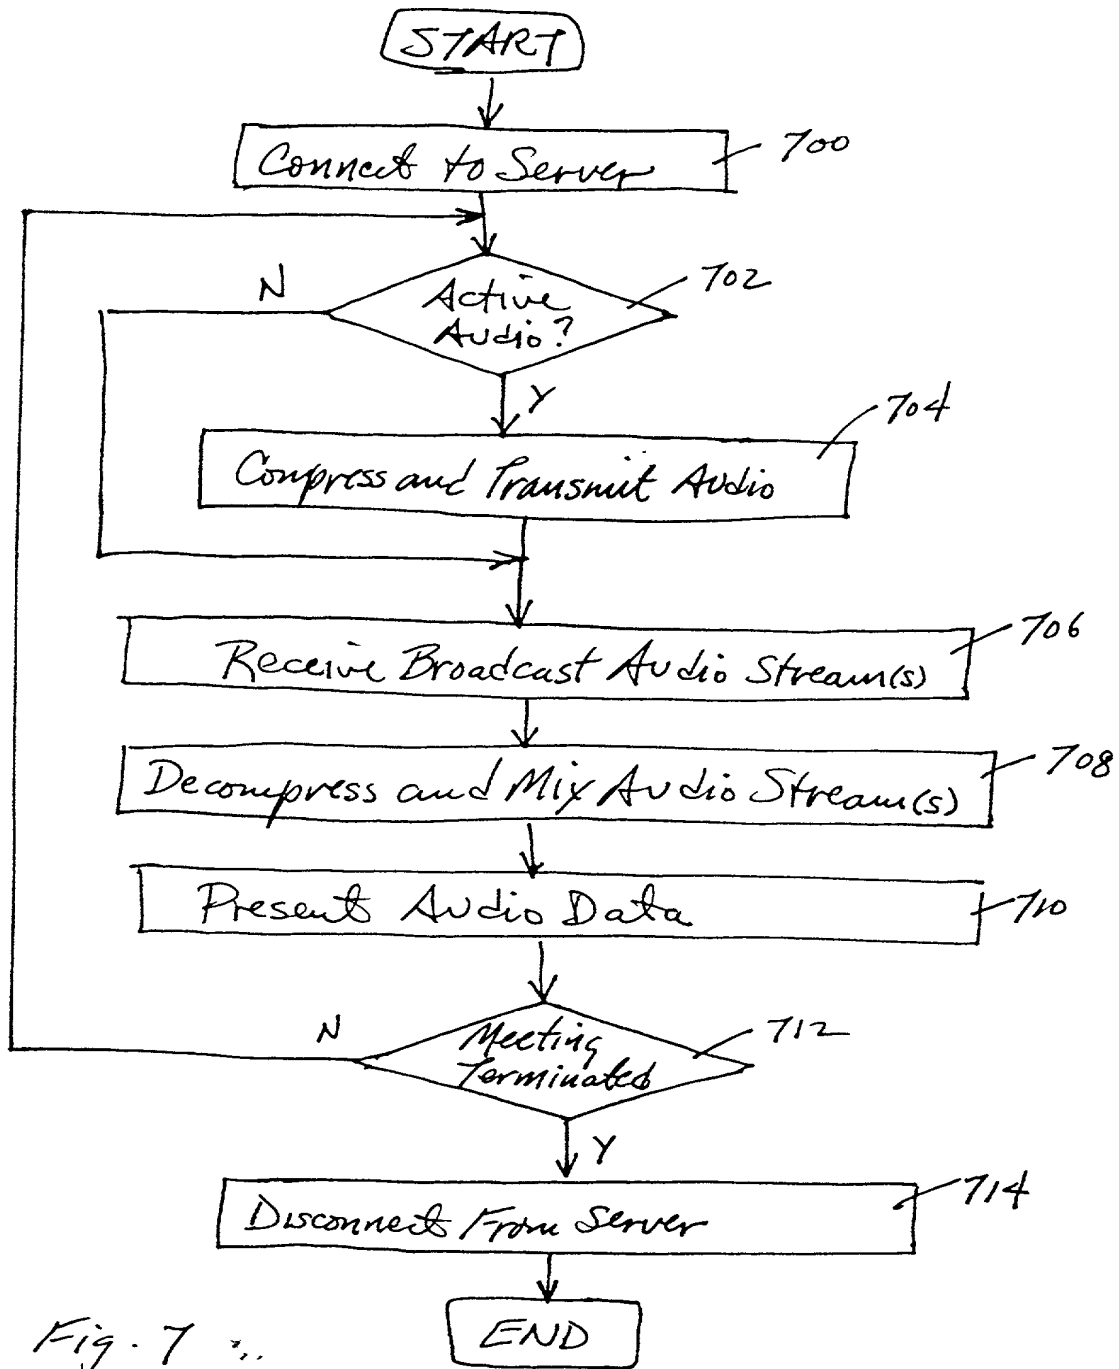 START
Connect to Server
700
N
Active
Audio?
702
Y
704
Compress and Transmit Audio
706
Receive Broadcast Audio Stream(s)
708
Decompress and Mix Audio Stream(s)
Present Audio Data
710
N
Meeting
Terminated
712
Y
714
Disconnect From Server
END
Fig. 7